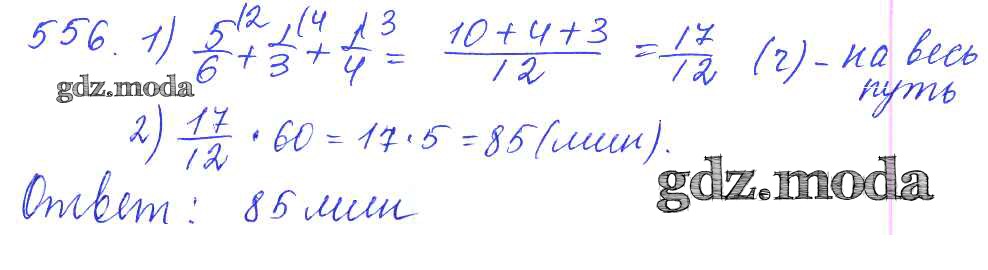 556. 1) 5/6 (2 + 1/3 (4 + 1/4 (3 = (10 + 4 + 3)/12 = 17/12 (ч) – на весь
путь
gdz.moda
2) 17/12 · 60 = 17 · 5 = 85 (мин).
gdz.moda
Ответ: 85 мин